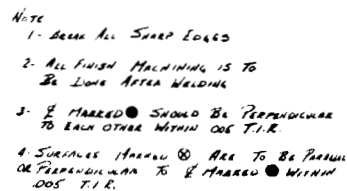 NOTE
1- BREAK ALL SHARP EDGES
2- ALL FINISH MACHINING IS TO
BE DONE AFTER WELDING
3- ℄ MARKED ● SHOULD BE PERPENDICULAR
TO EACH OTHER WITHIN .005 T.I.R.
4- SURFACES MARKED ⊗ ARE TO BE PARALLEL
OR PERPENDICULAR TO ℄ MARKED ● WITHIN
.005 T.I.R.